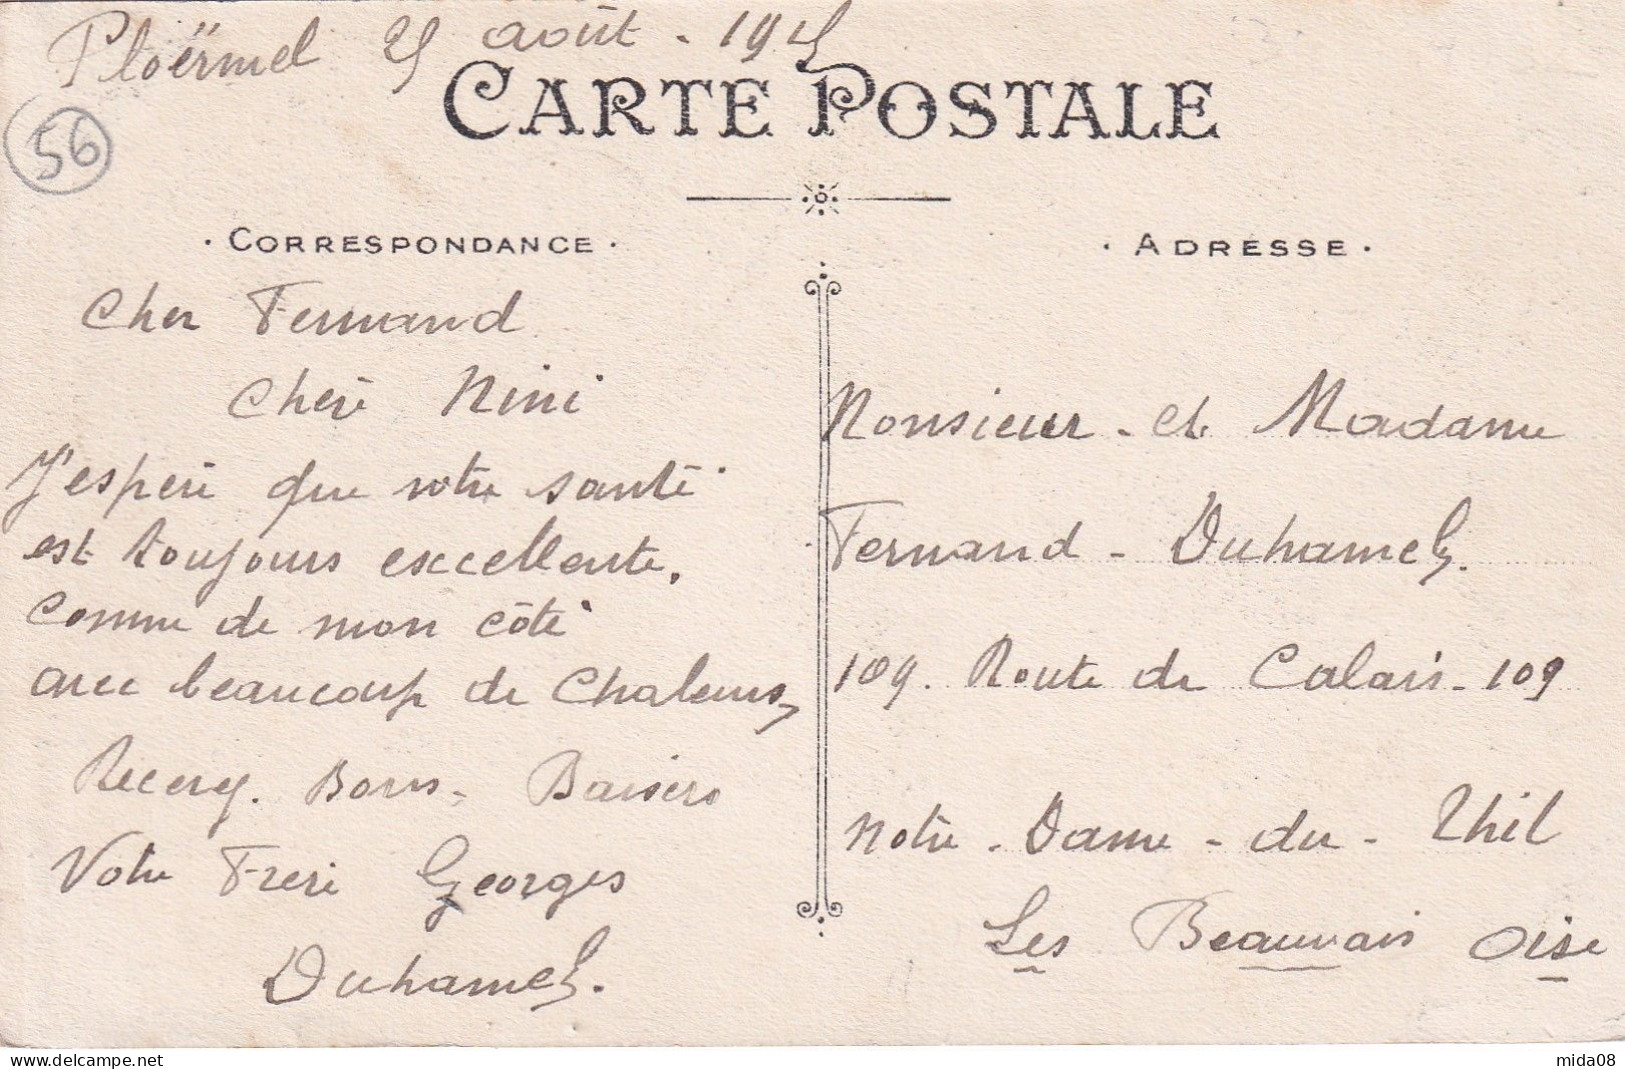 Ploërmel 25 août - 1915
CARTE POSTALE
56
· CORRESPONDANCE ·
Cher Fernand
Cheré Nini
J'esperé que votre santé
est toujours excellente,
comme de mon côté
avec beaucoup de Chaleurs,
Recevez. Bons. Baisers
Votre Frere Georges
Duhamel.
· ADRESSE ·
Monsieur - et Madame
Fernand - Duhamel.
109. Route de Calais - 109
Notre - Dame - du - Thil
Les Beauvais Oise
mida08